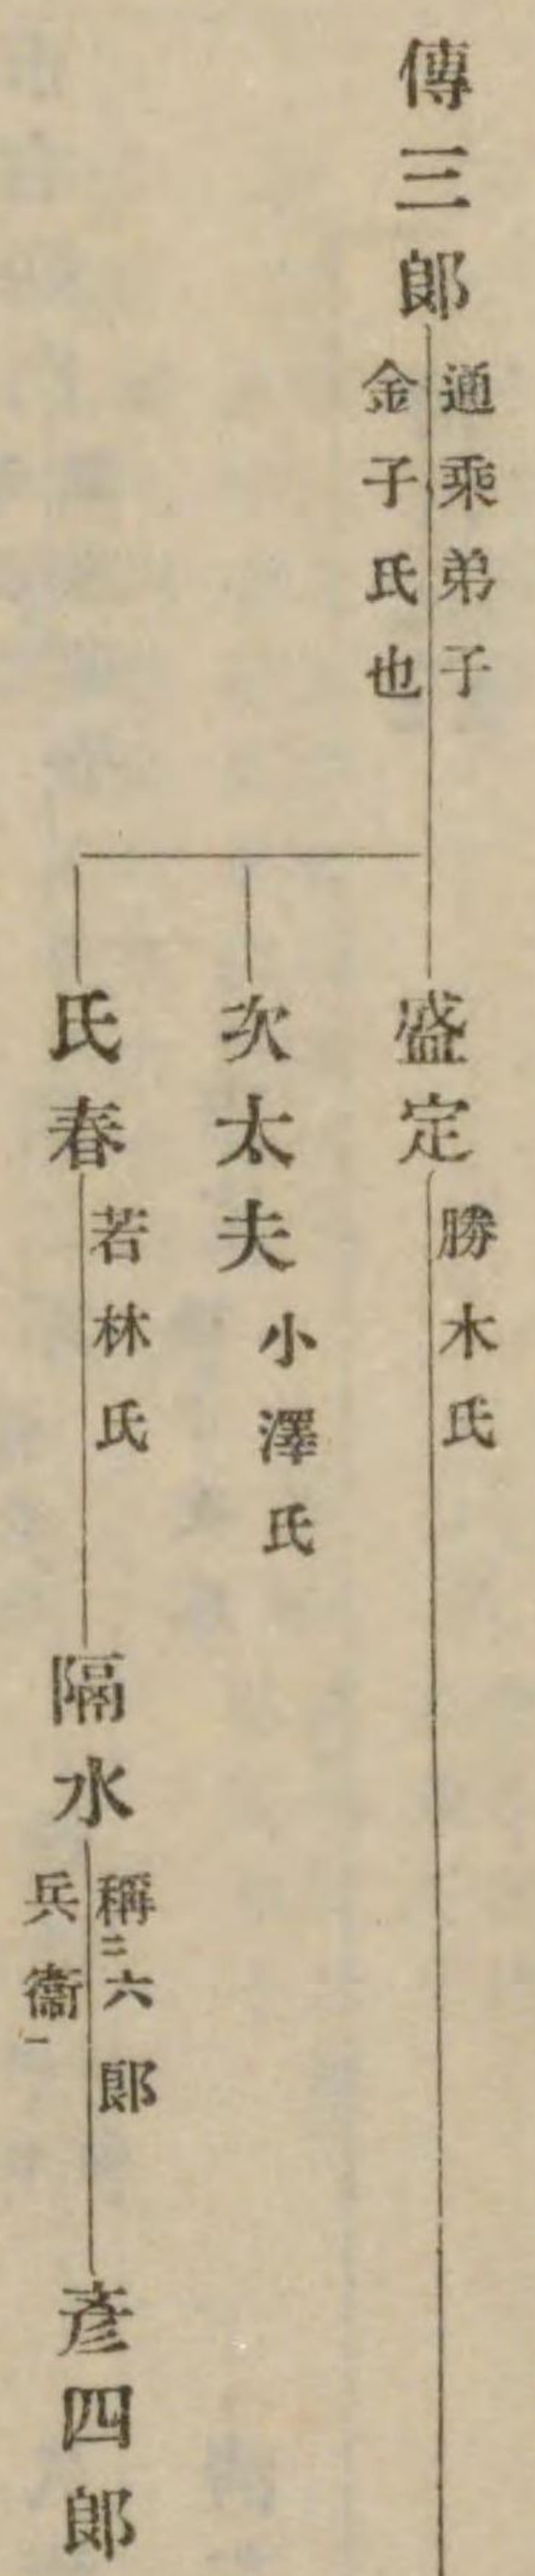 傳三郎
通乘弟子
金子氏也
盛定
勝木氏
次太夫
小澤氏
氏春
若林氏
隔水
稱二六郎
兵衞一
彥四郎